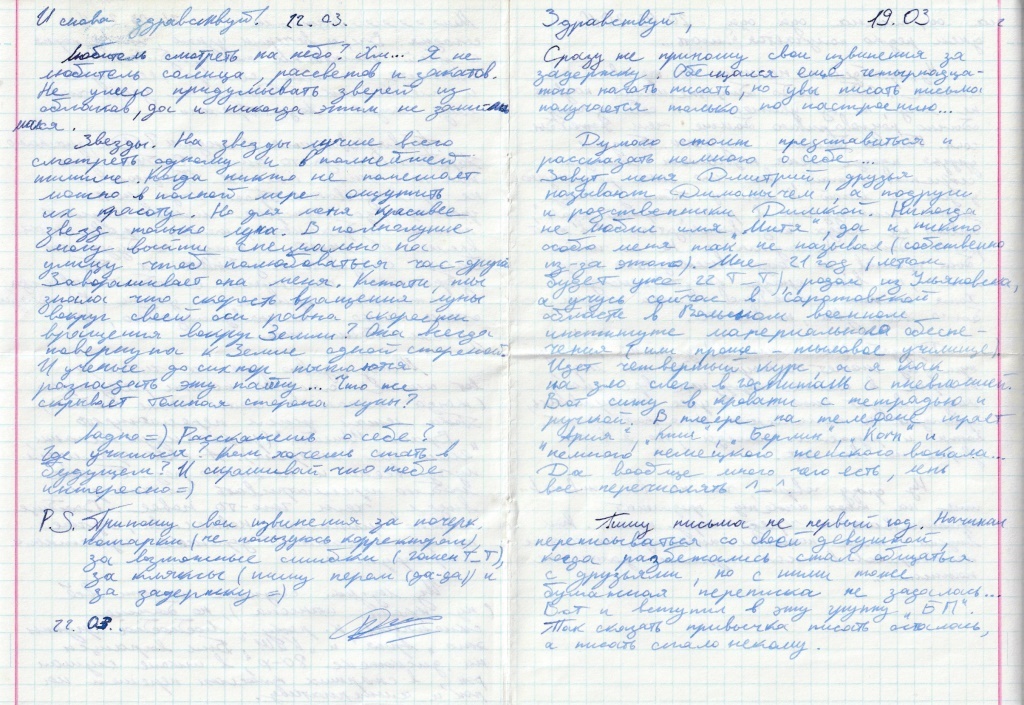 И снова здравствуй! 22.03.
Любитель смотреть на небо? Хм... Я не
любитель солнца, рассветов и закатов.
Не умею придумывать зверей из
облаков, да и никогда этим не занимался.
Звезды. На звезды лучше всего
смотреть одному и в полнейшей
тишине. Когда никто не помешает
можно в полной мере ощутить
их красоту. Но для меня красивее
звезд только луна. В полнолуние
могу выйти специально на
улицу чтоб полюбоваться час-другой.
Завораживает она меня. Кстати, ты
знала что скорость вращения луны
вокруг своей оси равна скорости
вращения вокруг Земли? Она всегда
повернута к Земле одной стороной.
И ученые до сих пор пытаются
разгадать эту тайну... Что же
скрывает темная сторона луны?
Ладно =) Расскажешь о себе?
Где учишься? Кем хочешь стать в
будущем? И спрашивай что тебе
интересно =)
P.S. Приношу свои извинения за почерк,
помарки (не пользуюсь корректором),
за возможные ошибки (гомен Т_Т),
за кляксы (пишу пером (да-да)) и
за задержку =)
22.03.
Здравствуй, 19.03
Сразу же приношу свои извинения за
задержку. Обещался ещё четырнадца-
того начать писать, но увы писать письма
получается только по настроению...
Думаю стоит представиться и
рассказать немного о себе...
Зовут меня Дмитрий, друзья
называют Диманычем, а подруги
и родственники Димкой. Никогда
не любил имя "Митя", да и никто
особо меня так не называл (собственно
из-за этого). Мне 21 год (летом
будет уже 22 Т_Т), родом из Ульяновска,
а учусь сейчас в Саратовской
области в Вольском военном
институте материального обеспе-
чения (или проще - тыловое училище).
Идет четвертый курс, а я как
на зло слег в госпиталь с пневмонией.
Вот сижу в кровати с тетрадью и
ручкой. В плеере на телефоне играет
"Ария", "Кипш", "Берлин", "Korn" и
немного немецкого женского вокала...
Да вообще много чего есть, лень
все перечислять ^_^
Пишу письма не первый год. Начинал
переписываться со своей девушкой,
когда разбежались стал общаться
с друзьями, но с ними тоже
бумажная переписка не задалась...
Вот и вступил в эту группу "БП".
Так сказать привычка писать осталась,
а писать стало некому.